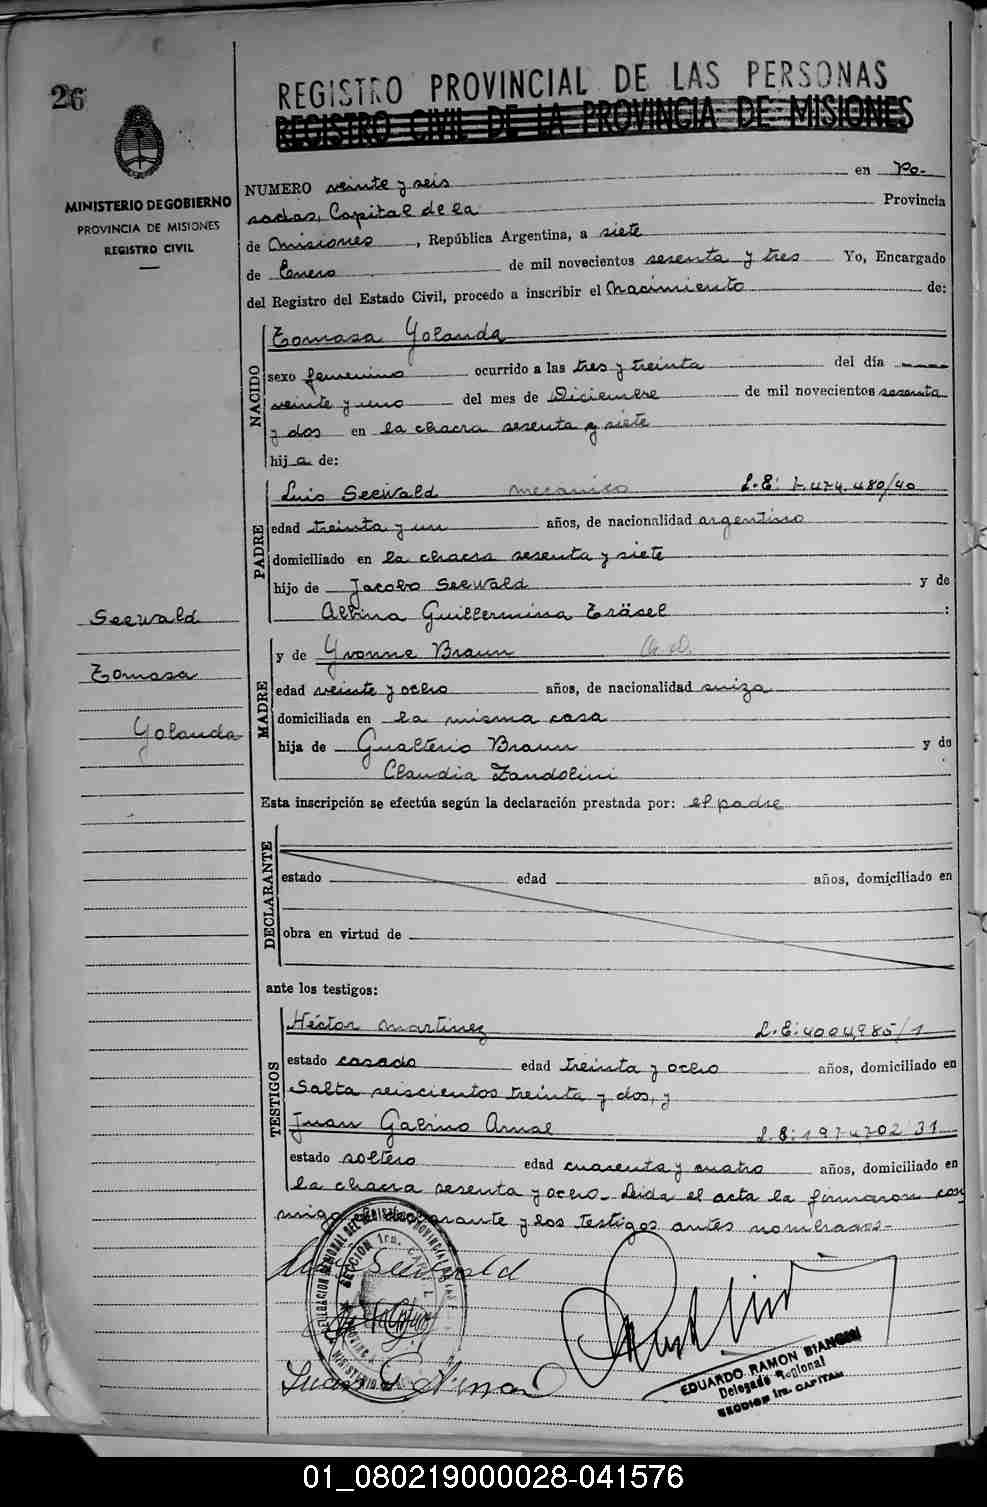 26
REGISTRO PROVINCIAL DE LAS PERSONAS
REGISTRO CIVIL DE LA PROVINCIA DE MISIONES
MINISTERIO DE GOBIERNO
PROVINCIA DE MISIONES
REGISTRO CIVIL
NUMERO veinte y seis en Po-
sadas, Capital de la Provincia
de Misiones, República Argentina, a siete
de Enero de mil novecientos sesenta y tres Yo, Encargado
del Registro del Estado Civil, procedo a inscribir el Nacimiento de:
NACIDO
Tomasa Yolanda
sexo femenino ocurrido a las tres y treinta del día
veinte y uno del mes de Diciembre de mil novecientos sesenta
y dos en la chacra sesenta y siete
hija de:
PADRE
Luis Seewald mecánico L.E: 7.474.480/40
edad treinta y un años, de nacionalidad argentino
domiciliado en la chacra sesenta y siete
hijo de Jacobo Seewald y de
Albina Guillermina Träsel :
Seewald
Tomasa
Yolanda
MADRE
y de Yvonne Braun
edad veinte y ocho años, de nacionalidad suiza
domiciliada en la misma casa
hija de Gualterio Braun y de
Claudia Zandolini
Esta inscripción se efectúa según la declaración prestada por: el padre
DECLARANTE
estado edad años, domiciliado en
obra en virtud de
ante los testigos:
TESTIGOS
Héctor Martinez L.E: 4004,985/1
estado casado edad treinta y ocho años, domiciliado en
Salta seiscientos treinta y dos, y
Juan Galino Arnal L.E: 1974702/31
estado soltero edad cuarenta y cuatro años, domiciliado en
la chacra sesenta y ocho. Leida el acta la firmaron con
migo el declarante y los testigos antes nombrados-
Luis Seewald
EDUARDO RAMON BIANCHI
Delegado Regional
SECCION 1ra. CAPITAL
01_080219000028-041576